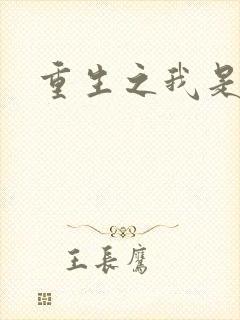 重生之我是
王長鷹